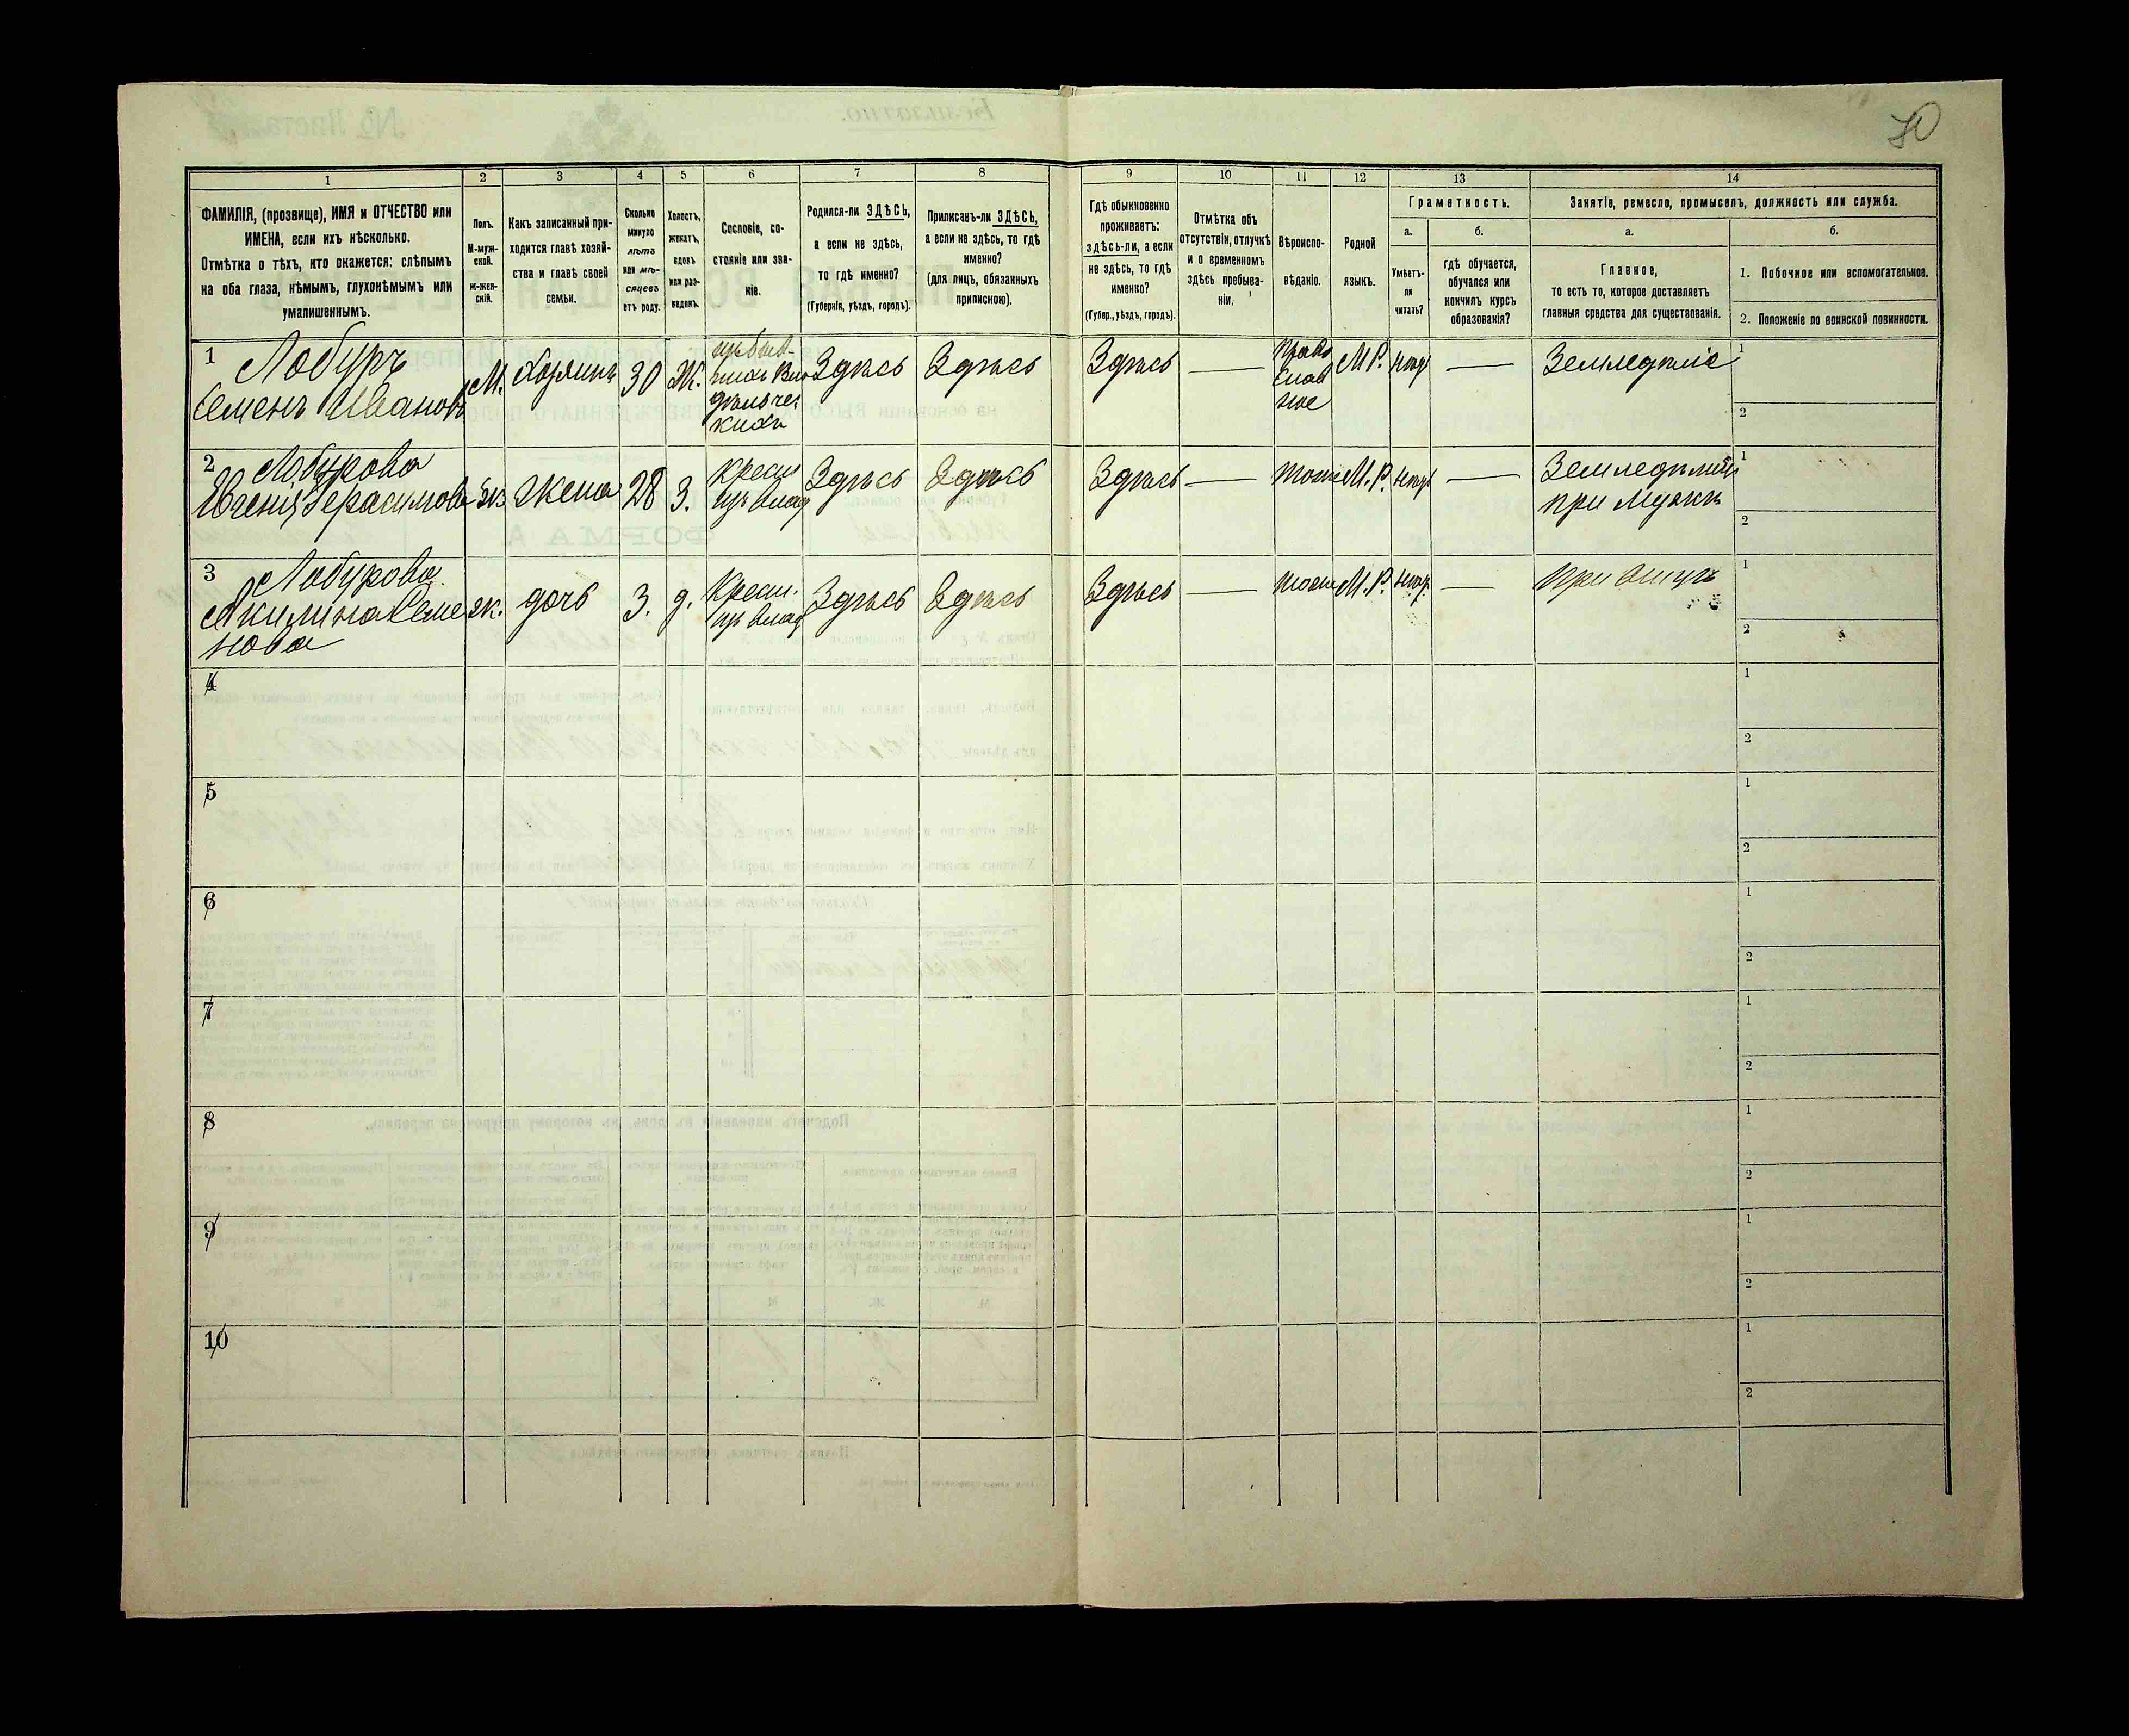 70
1 2 3 4 5 6 7 8 9 10 11 12 13 14
ФАМИЛІЯ, (прозвище), ИМЯ и ОТЧЕСТВО или
ИМЕНА, если ихъ нѣсколько.
Отмѣтка о тѣхъ, кто окажется: слѣпымъ
на оба глаза, нѣмымъ, глухонѣмымъ или
умалишеннымъ.
Полъ.
М-муж-
ской.
ж-жен-
скій.
Какъ записанный при-
ходится главѣ хозяй-
ства и главѣ своей
семьи.
Сколько
минуло
лѣтъ
или мѣ-
сяцевъ
отъ роду.
Холостъ,
женатъ,
вдовъ
или раз-
веденъ.
Сословіе, со-
стояніе или зва-
ніе.
Родился-ли ЗДѢСЬ,
а если не здѣсь,
то гдѣ именно?
(Губернія, уѣздъ, городъ).
Приписанъ-ли ЗДѢСЬ,
а если не здѣсь, то гдѣ
именно?
(для лицъ, обязанныхъ
припискою).
Гдѣ обыкновенно
проживаетъ:
здѣсь-ли, а если
не здѣсь, то гдѣ
именно?
(Губер., уѣздъ, городъ).
Отмѣтка объ
отсутствіи, отлучкѣ
и о временномъ
здѣсь пребыва-
ніи.
Вѣроиспо-
вѣданіе.
Родной
языкъ.
Грамотность.
а.
Умѣетъ-
ли
читать?
б.
гдѣ обучается,
обучался или
кончилъ курсъ
образованія?
Занятіе, ремесло, промыселъ, должность или служба.
а.
Главное,
то есть то, которое доставляетъ
главныя средства для существованія.
б.
1. Побочное или вспомогательное.
2. Положеніе по воинской повинности.
1 Лобуръ
Семенъ Ивановъ
М.
Хозяинъ
30
Ж.
Здѣсь
Здѣсь
Здѣсь
—
Право
слав
ное
М Р.
нѣтъ
—
Земледѣліе
1
2
2 Лобурова
Евгенія Герасимова
ж.
Жена
28
З.
Крест
изъ влад
Здѣсь
Здѣсь
Здѣсь
—
тоже
М. Р.
нѣтъ
—
при мужѣ
1
2
3 Лобурова
Акилина Семе
нова
ж.
дочь
3.
д.
Крест.
изъ влад
Здѣсь
Здѣсь
Здѣсь
—
тоже
М. Р.
нѣтъ
—
при отцѣ
1
2
4
1
2
5
1
2
6
1
2
7
1
2
8
1
2
9
1
2
10
1
2